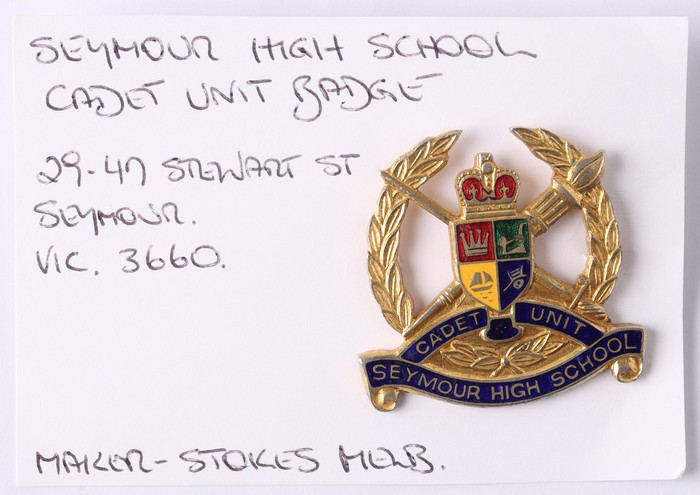 SEYMOUR HIGH SCHOOL
CADET UNIT BADGE
29-47 STEWART ST
SEYMOUR.
VIC. 3660.
CADET UNIT
SEYMOUR HIGH SCHOOL
MAKER - STOKES MELB.